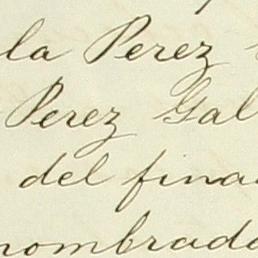 la Perez
Perez Gal
del fina
nombrado